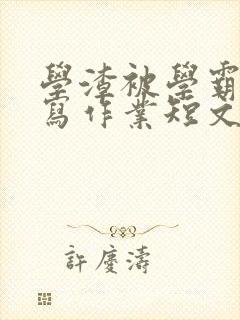 學渣被學霸
寫作業短文
許慶濤